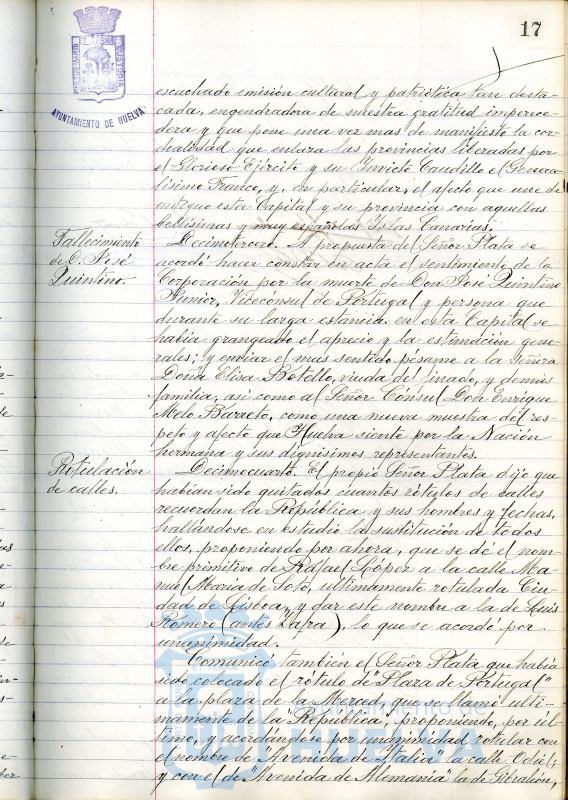 17
AYUNTAMIENTO DE HUELVA
escuchado emisión cultural y patriótica tan desta-
cada, engendradora de nuestra gratitud imperece-
dera y que pone una vez mas de manifiesto la cor-
dialidad que enlaza las provincias liberadas por
el Glorioso Ejército y su Invicto Caudillo el Genera-
lísimo Franco, y, en particular, el afecto que une de
antiguo esta Capital y su provincia con aquellas
bellísimas y muy españolas Islas Canarias.
Fallecimiento
de D. José
Quintino.
Decimotercero. A propuesta del Señor Plata se
acordó hacer constar en acta el sentimiento de la
Corporación por la muerte de Don José Quintino
Junior, Vicecónsul de Portugal y persona que
durante su larga estancia en esta Capital se
había grangeado el aprecio y la estimación gene-
rales; y enviar el mas sentido pésame a la Señora
Doña Elisa Botello, viuda del finado, y demás
familia, así como al Señor Cónsul Don Enrique
Melo Barreto, como una nueva muestra del res-
peto y afecto que Huelva siente por la Nación
hermana y sus dignísimos representantes.
Rotulación
de calles.
Decimocuarto. El propio Señor Plata dijo que
habían sido quitados cuantos rótulos de calles
recuerdan la República y sus hombres y fechas,
hallándose en estudio la sustitución de todos
ellos, proponiendo por ahora, que se dé el nom-
bre primitivo de Rafael López a la calle Ma-
nuel María de Soto, ultimamente rotulada Ciu-
dad de Lisboa, y dar este nombre a la de Luis
Romero (antes Zafra), lo que se acordó por
unanimidad.
Comunicó también el Señor Plata que había
sido colocado el rótulo de "Plaza de Portugal"
a la plaza de la Merced, que se llamó ulti-
mamente de la "República", proponiendo, por úl-
timo, y acordándose por unanimidad rotular con
el nombre de "Avenida de Italia" la calle Odiel,
y con el de "Avenida de Alemania" la de Gibraleón,